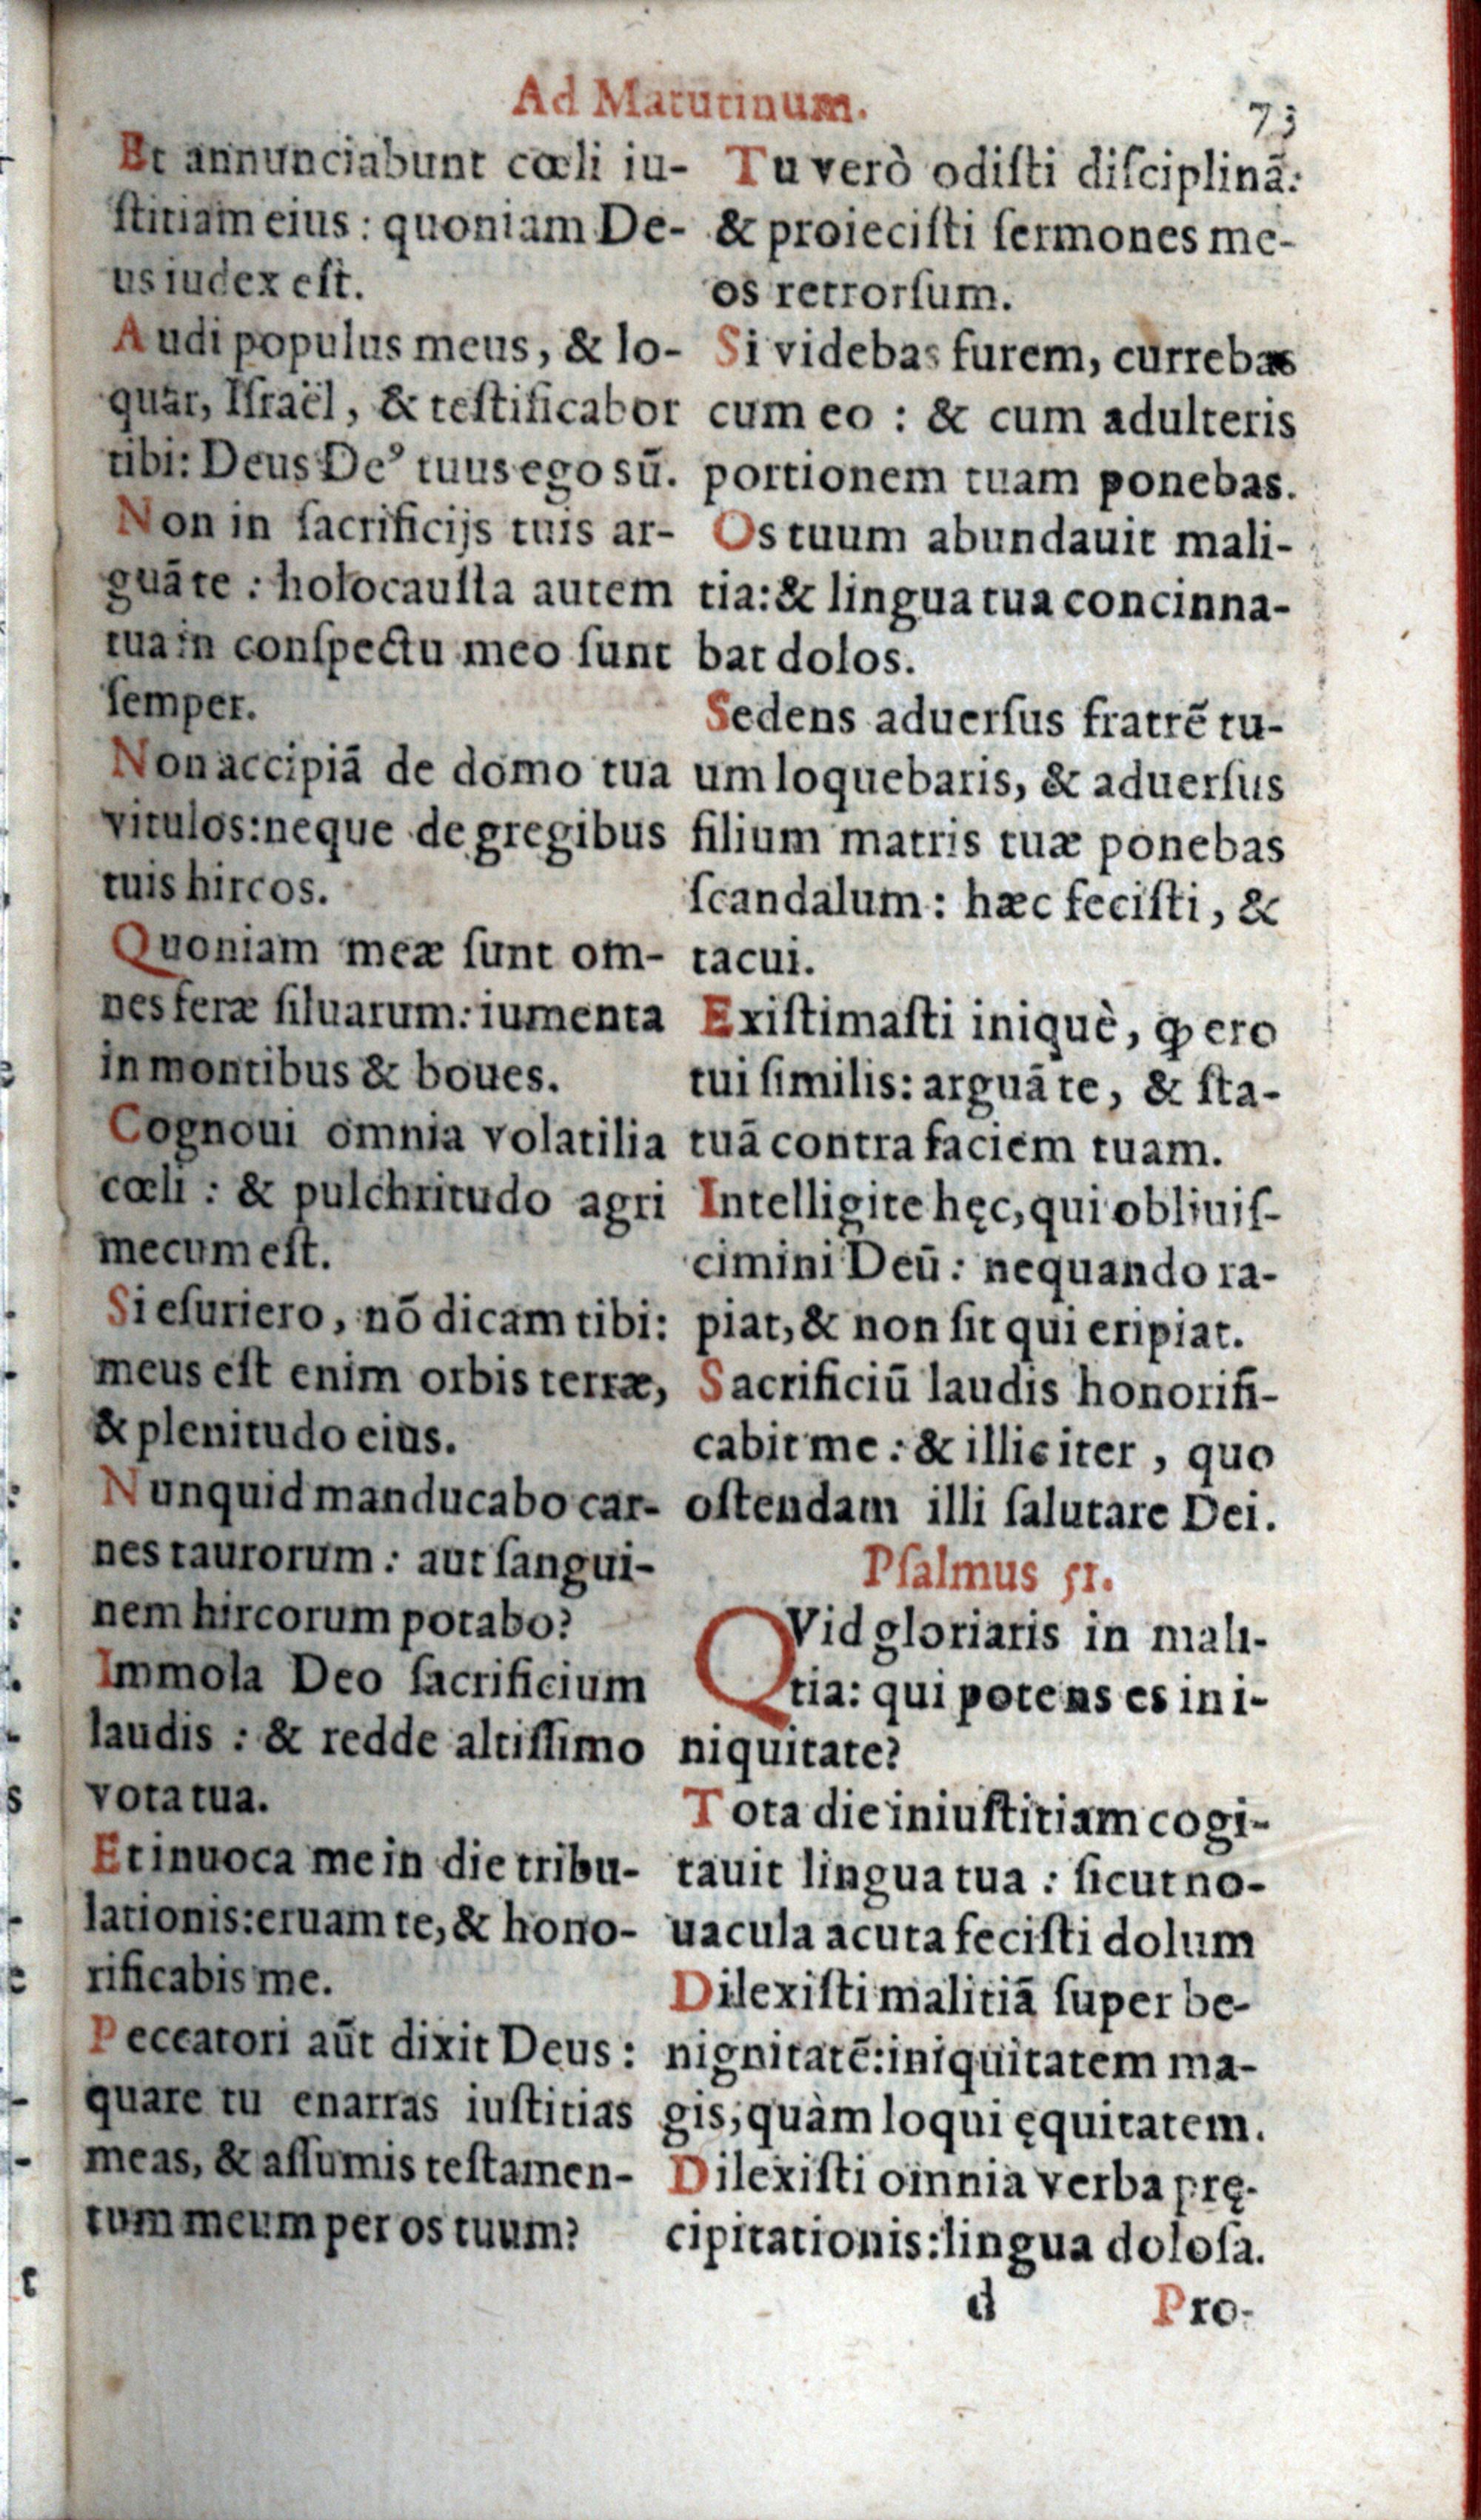 Ad Matutinum.
73
Et annunciabunt cœli iu-
ſtitiam eius : quoniam De-
us iudex eſt.
Audi populus meus, & lo-
quar, Iſraël, & teſtificabor
tibi: Deus Deꝰ tuus ego sū.
Non in ſacrificijs tuis ar-
guā te : holocauſta autem
tua in conſpectu meo ſunt
ſemper.
Non accipiā de domo tua
vitulos: neque de gregibus
tuis hircos.
Quoniam meæ ſunt om-
nes feræ ſiluarum: iumenta
in montibus & boues.
Cognoui omnia volatilia
cœli : & pulchritudo agri
mecum eſt.
Si eſuriero, nō dicam tibi:
meus eſt enim orbis terræ,
& plenitudo eius.
Nunquid manducabo car-
nes taurorum : aut ſangui-
nem hircorum potabo?
Immola Deo ſacrificium
laudis : & redde altiſſimo
vota tua.
Et inuoca me in die tribu-
lationis: eruam te, & hono-
rificabis me.
Peccatori aūt dixit Deus :
quare tu enarras iuſtitias
meas, & aſſumis teſtamen-
tum meum per os tuum?
Tu verò odiſti diſciplinā:
& proieciſti ſermones me-
os retrorſum.
Si videbas furem, currebas
cum eo : & cum adulteris
portionem tuam ponebas.
Os tuum abundauit mali-
tia: & lingua tua concinna-
bat dolos.
Sedens aduerſus fratrē tu-
um loquebaris, & aduerſus
filium matris tuæ ponebas
ſcandalum : hæc feciſti, &
tacui.
Exiſtimaſti iniquè, ꝙ ero
tui ſimilis: arguā te, & ſta-
tuā contra faciem tuam.
Intelligite hęc, qui obliuiſ-
cimini Deū : nequando ra-
piat, & non ſit qui eripiat.
Sacrificiū laudis honorifi-
cabit me : & illic iter, quo
oſtendam illi ſalutare Dei.
Pſalmus 51.
QVid gloriaris in mali-
tia: qui potens es in i-
niquitate?
Tota die iniuſtitiam cogi-
tauit lingua tua : ſicut no-
uacula acuta feciſti dolum
Dilexiſti malitiā ſuper be-
nignitatē: iniquitatem ma-
gis, quàm loqui ęquitatem.
Dilexiſti omnia verba prę-
cipitationis: lingua doloſa.
d
Pro-